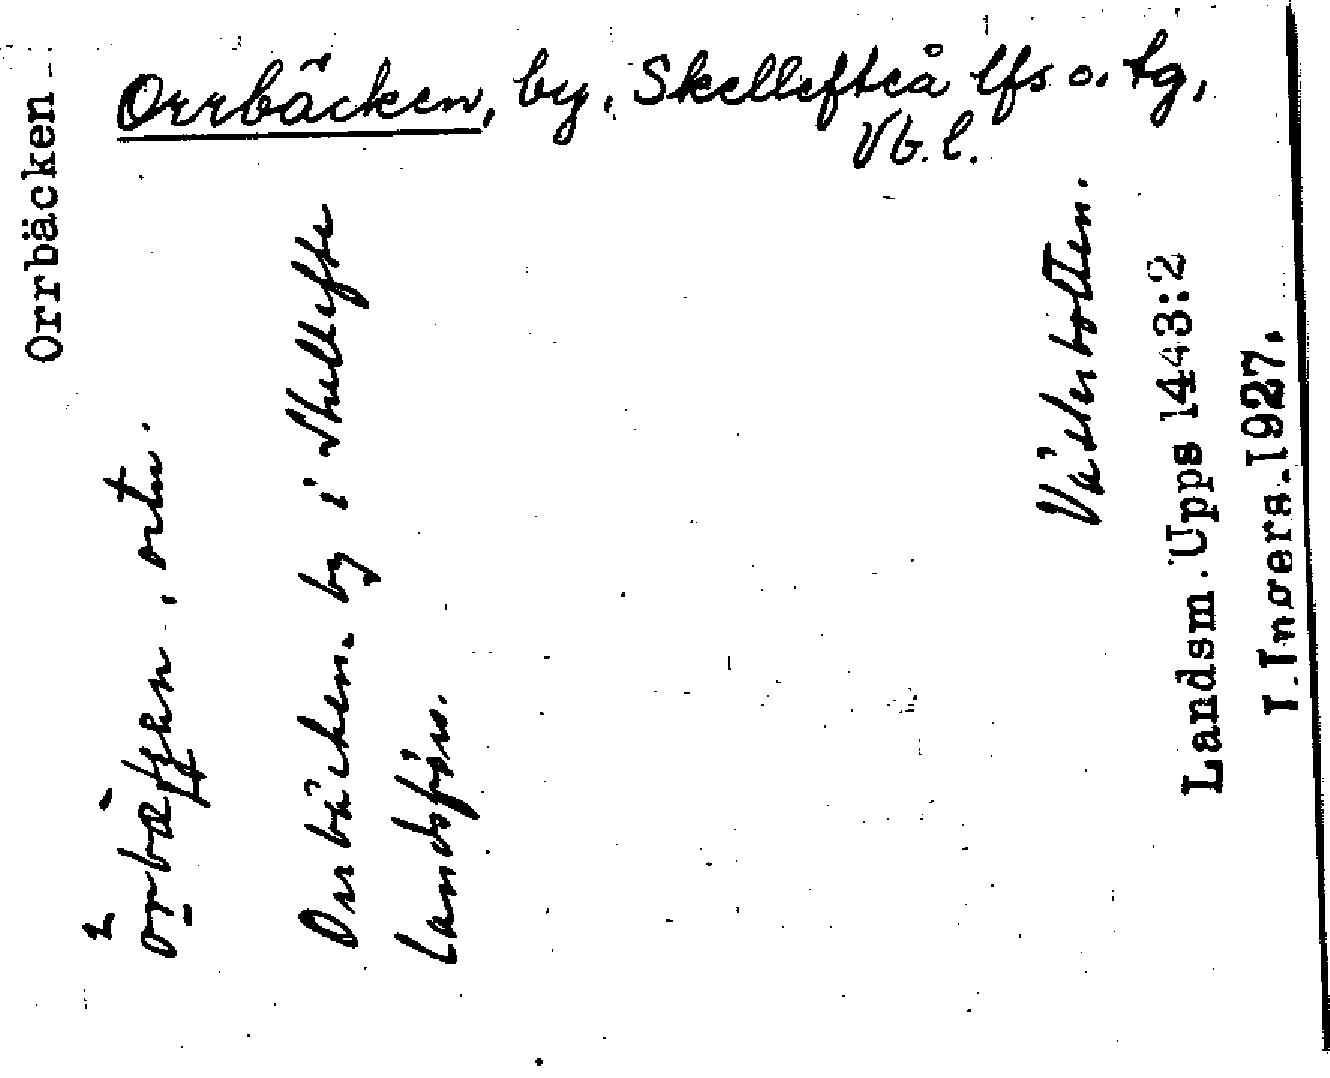 Orrbäcken, by, Skellefteå lfs o. tg,
Vb. l.
Orrbäcken
ortn.
Orrbäcken. by i Skellefte
Landsförs.
Västerbotten.
Landsm. Upps 1443:2
1927.